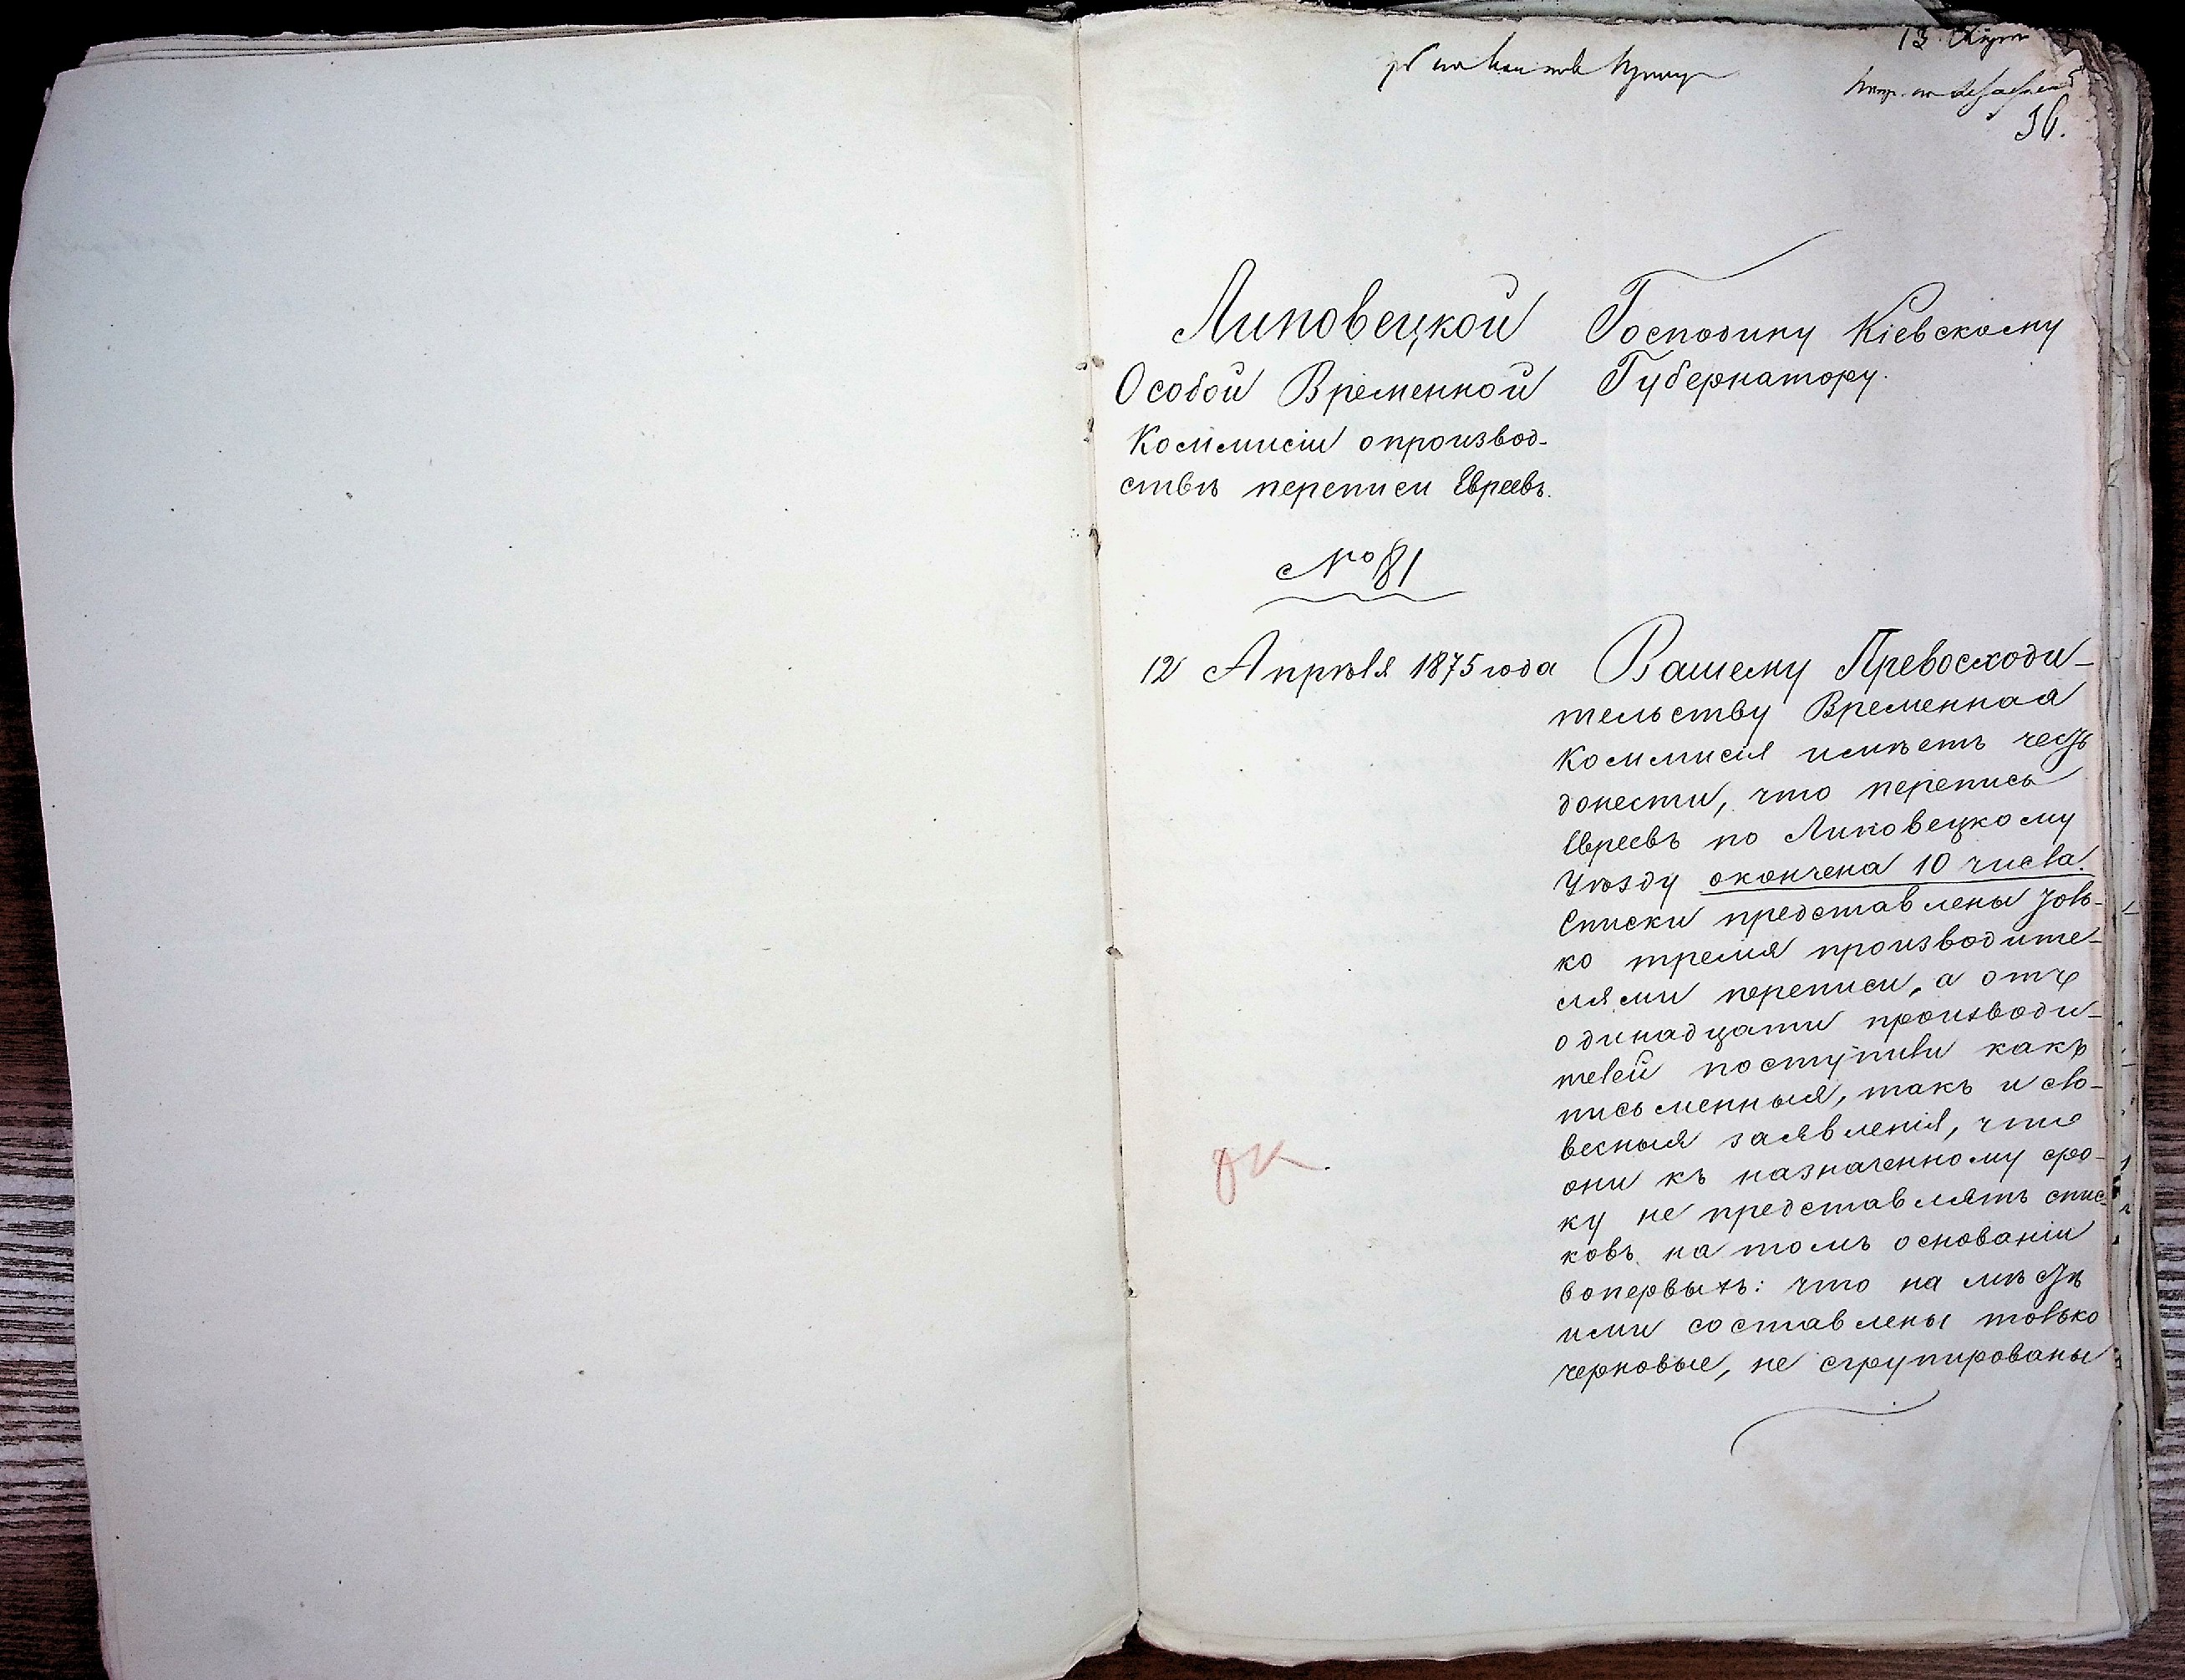 36.
Липовецкой
Особой Временной
Коммисіи опроизвод-
ствѣ переписи Евреевъ.
№ 81
12 Апрѣля 1875 года
Господину Кіевскому
Губернатору.
Вашему Превосходи-
тельству Временная
Коммисія имѣетъ честь
донести, что перепись
Евреевъ по Липовецкому
Уѣзду окончена 10 числа.
Списки представлены толь-
ко тремя производите-
лями переписи, а отъ
одинадцати производи-
телей поступили какъ
письменныя, такъ и сло-
весныя заявленія, что
они къ назначенному сро-
ку не представлятъ спис-
ковъ на томъ основаніи
вопервыхъ: что на мѣстѣ
ими составлены только
черновые, не сгрупированы